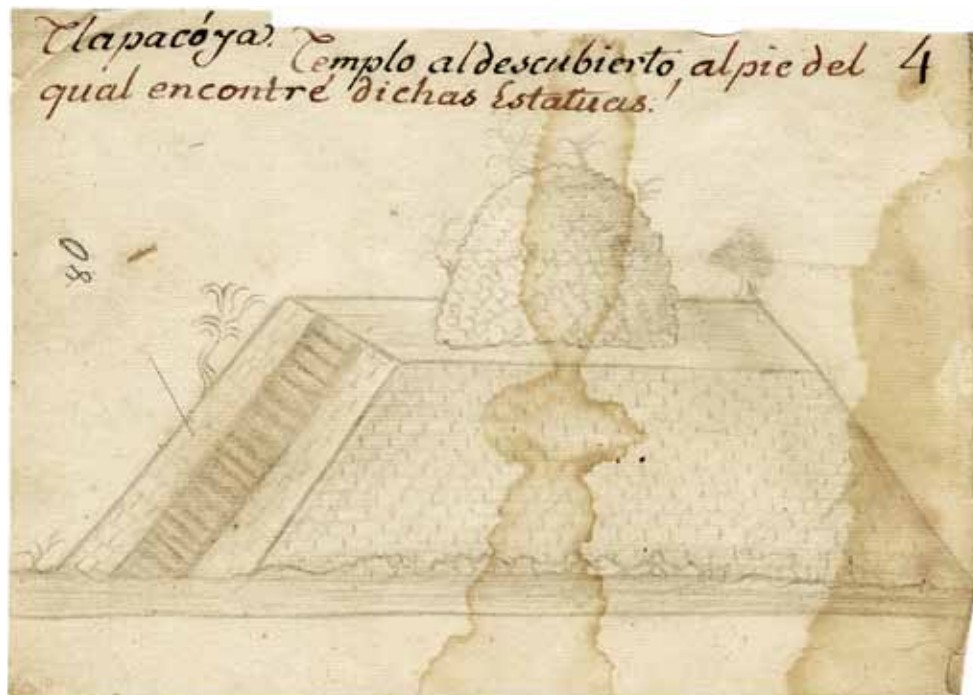 Tlapacóya. Templo al descubierto, al pie del 4
qual encontré dichas Estatuas.
80